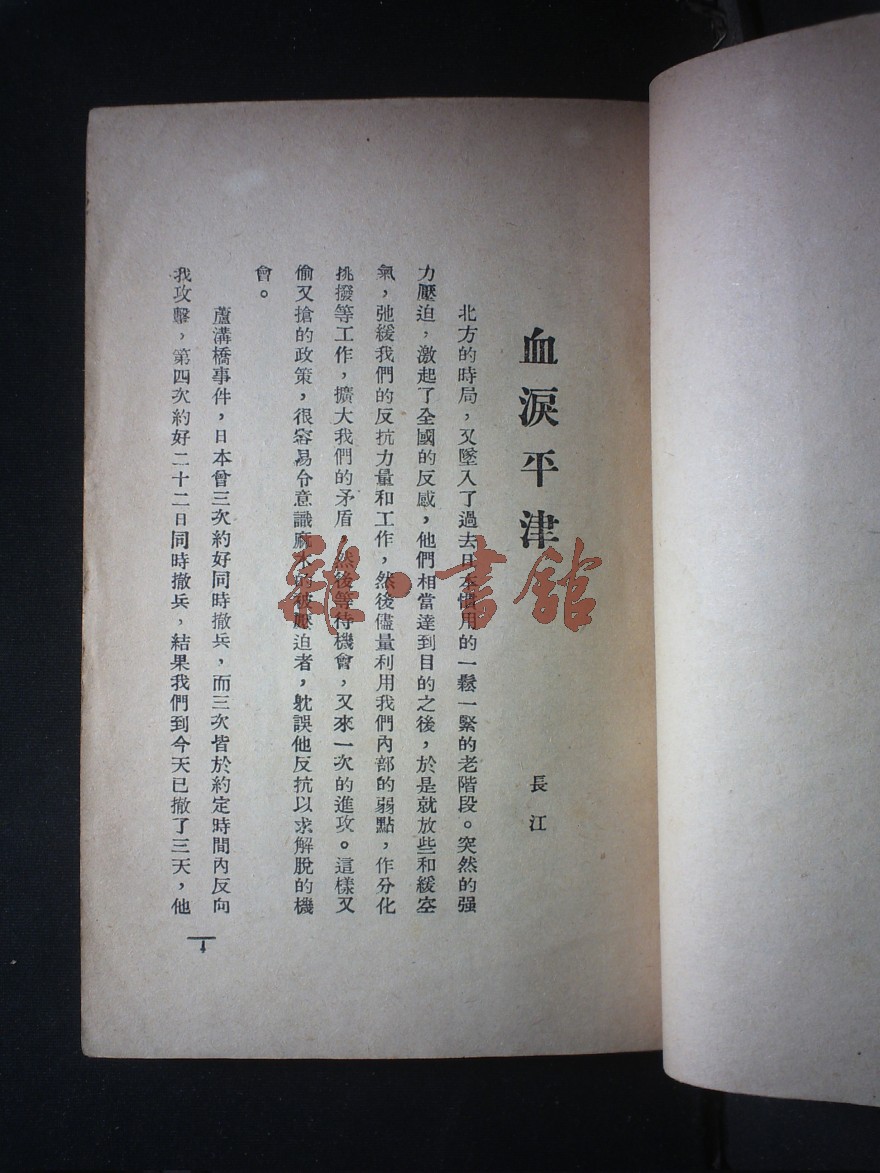 血淚平津
長江
北方的時局，又墜入了過去日本慣用的一鬆一緊的老階段。突然的强
力壓迫，激起了全國的反感，他們相當達到目的之後，於是就放些和緩空
氣，弛緩我們的反抗力量和工作，然後儘量利用我們內部的弱點，作分化
挑撥等工作，擴大我們的矛盾，然後等待機會，又來一次的進攻。這樣又
偷又搶的政策，很容易令意識麻木的被壓迫者，躭誤他反抗以求解脫的機
會。
蘆溝橋事件，日本曾三次約好同時撤兵，而三次皆於約定時間內反向
我攻擊，第四次約好二十二日同時撤兵，結果我們到今天已撤了三天，他
1
雜·書館